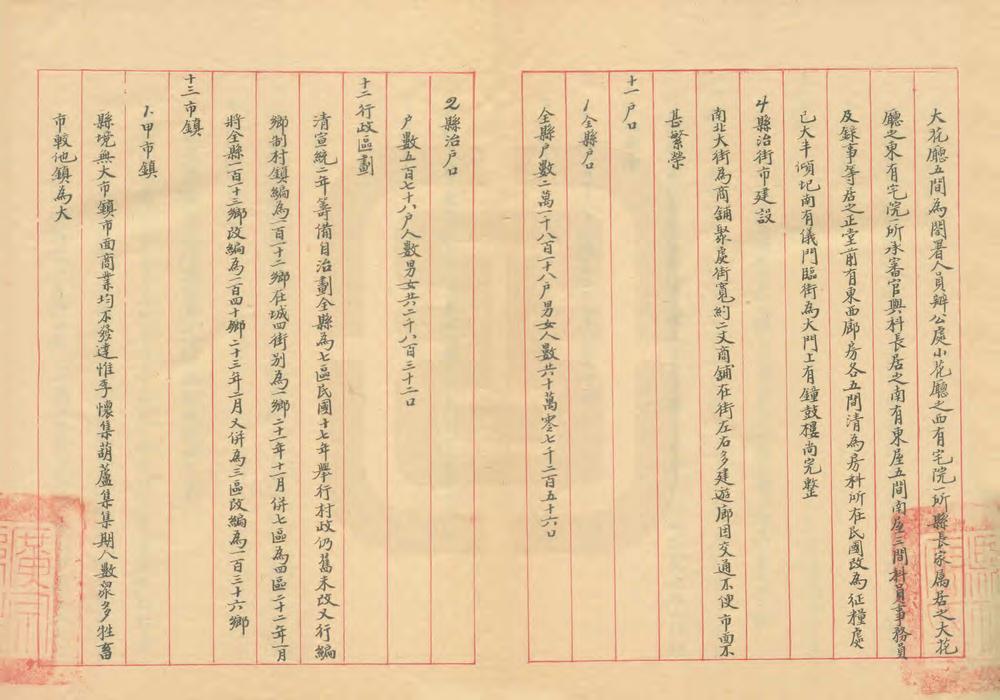 大花廳五間為闔署人員辦公處小花廳之西有宅院一所縣長家屬居之大花
廳之東有宅院一所承審官與科長居之南有東屋五間南屋三間科員事務員
及錄事等居之正堂前有東西廊房各五間清為房科所在民國改為征糧處
已大半傾圮南有儀門臨街為大門上有鐘鼓樓尚完整
4 縣治街市建設
南北大街為商舖聚處街寬約二丈商舖在街左右多建遊廊因交通不便市面不
甚繁榮
十一戶口
1 全縣戶口
全縣戶數二萬一千八百一十八戶男女人數共十萬零七千二百五十六口
2 縣治戶口
戶數五百七十八戶人數男女共二千八百三十二口
十二行政區劃
清宣統二年籌備自治劃全縣為七區民國十七年舉行村政仍舊未改又行編
鄉制村鎮編為一百一十二鄉在城四街別為一鄉二十一年十一月併七區為四區二十二年一月
將全縣一百十三鄉改編為一百四十鄉二十三年二月又併為三區改編為一百三十六鄉
十三市鎮
1. 甲市鎮
縣境無大市鎮市面商業均不發達惟李懷集葫蘆集集期人數眾多牲畜
市較他鎮為大